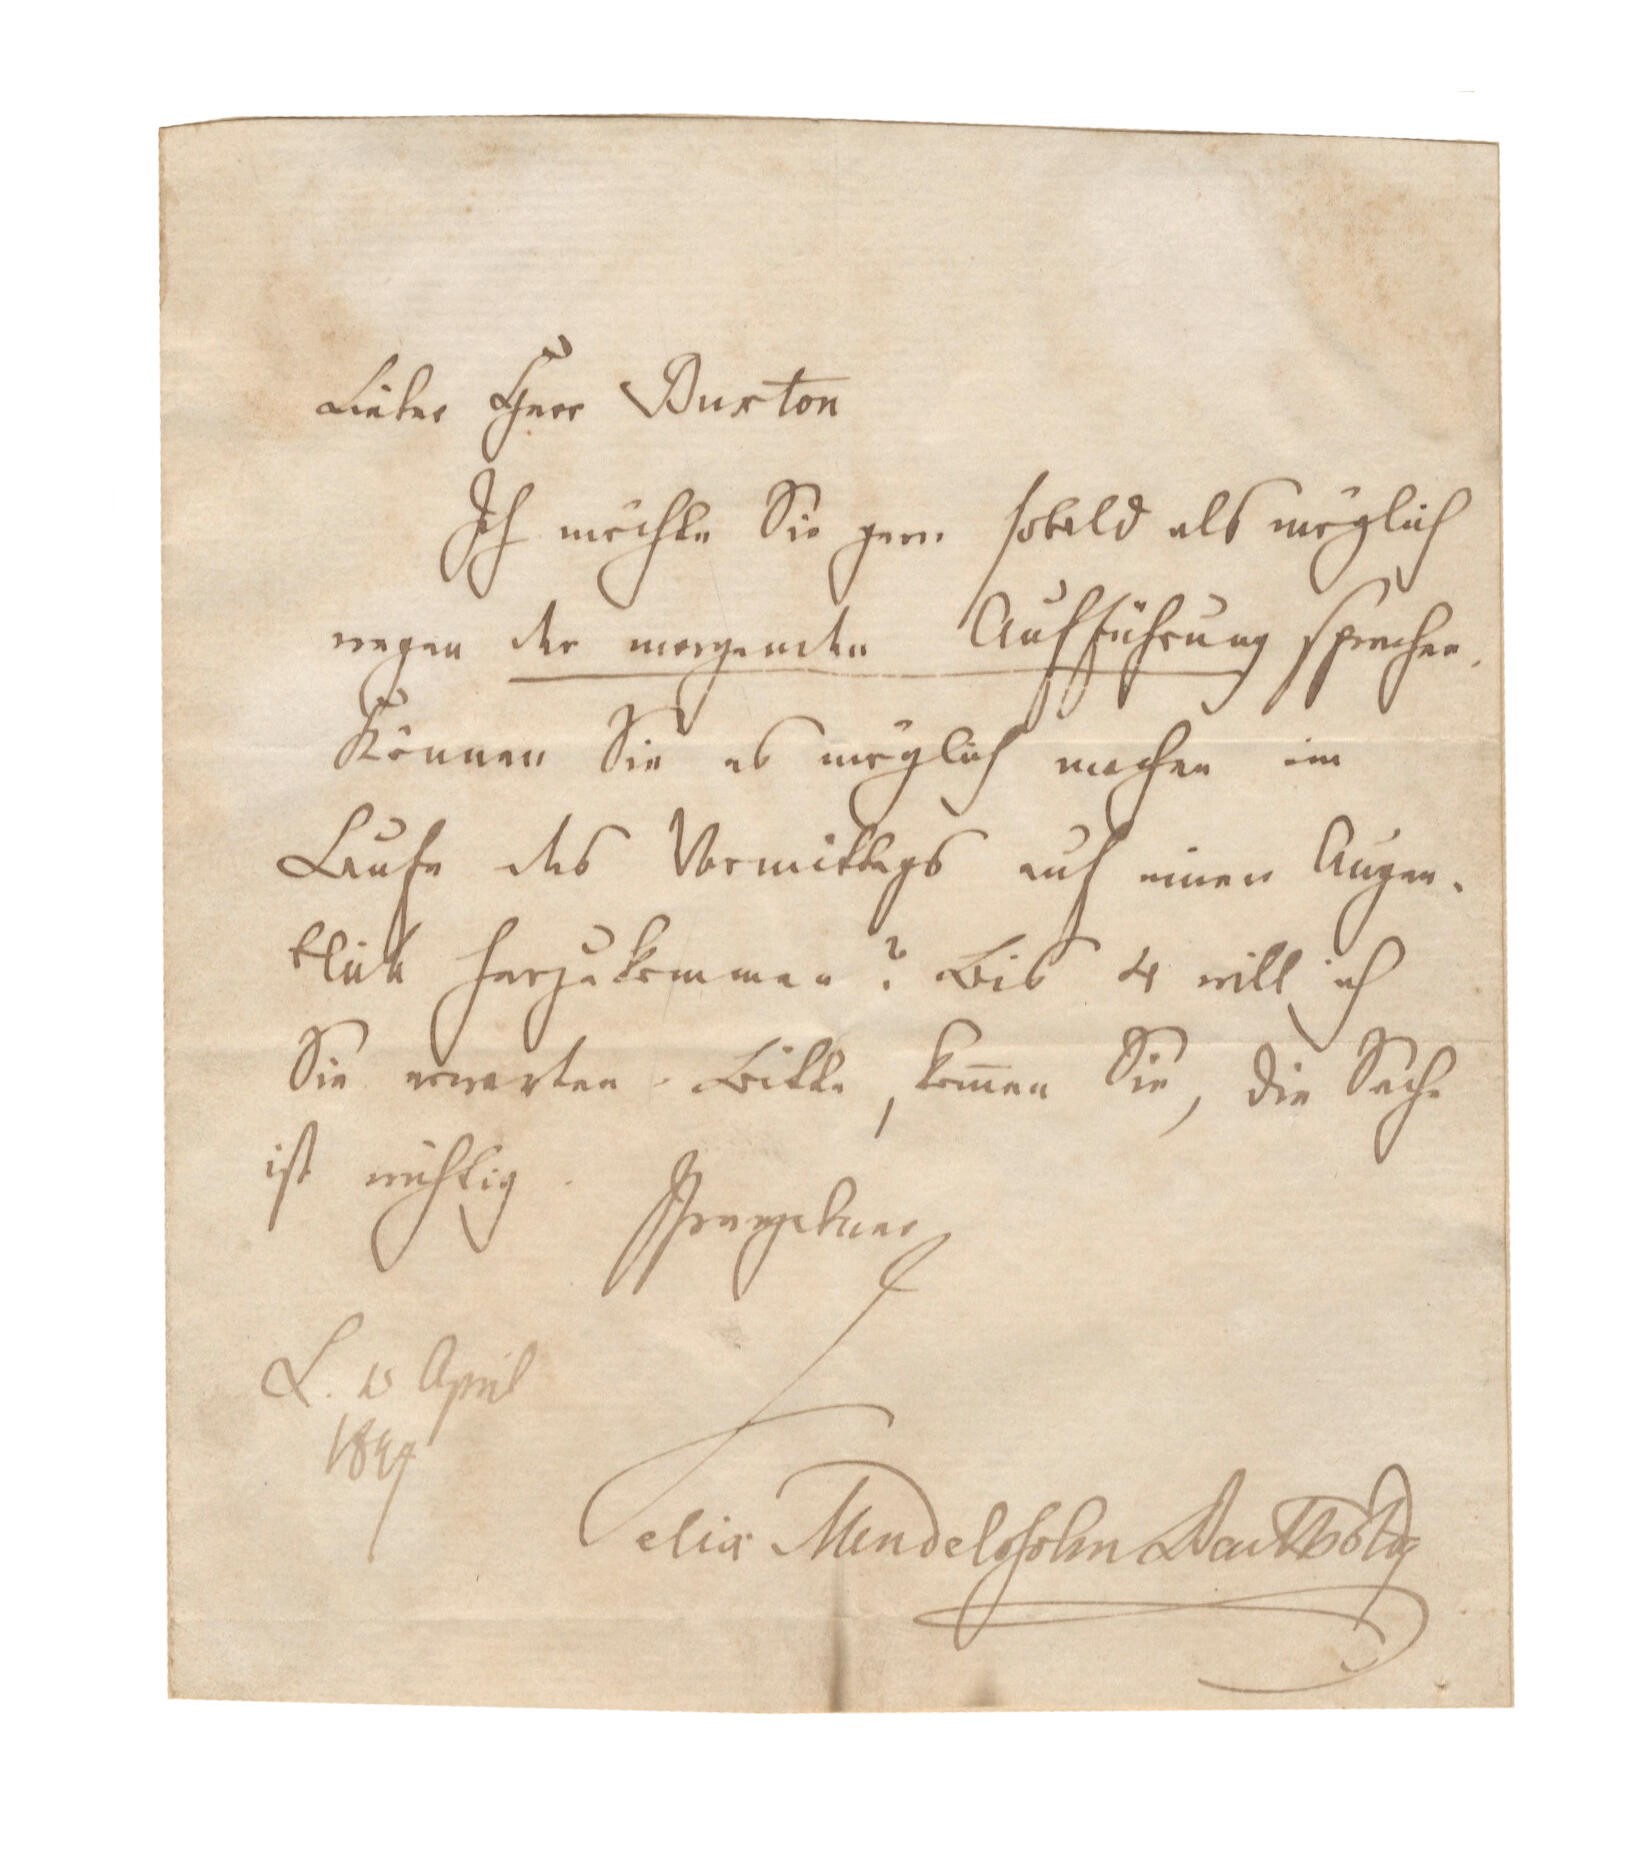 Lieber Herr Buxton
Ich möchte Sie gern sobald als möglich
wegen der morgenden Aufführung sprechen.
Können Sie es möglich machen im
Laufe des Vormittags auf einen Augen-
blick herzukommen? Bis 4 will ich
Sie erwarten. Bitte, kom̅en Sie, die Sache
ist wichtig.
L. April
1847
Felix Mendelssohn Bartholdy